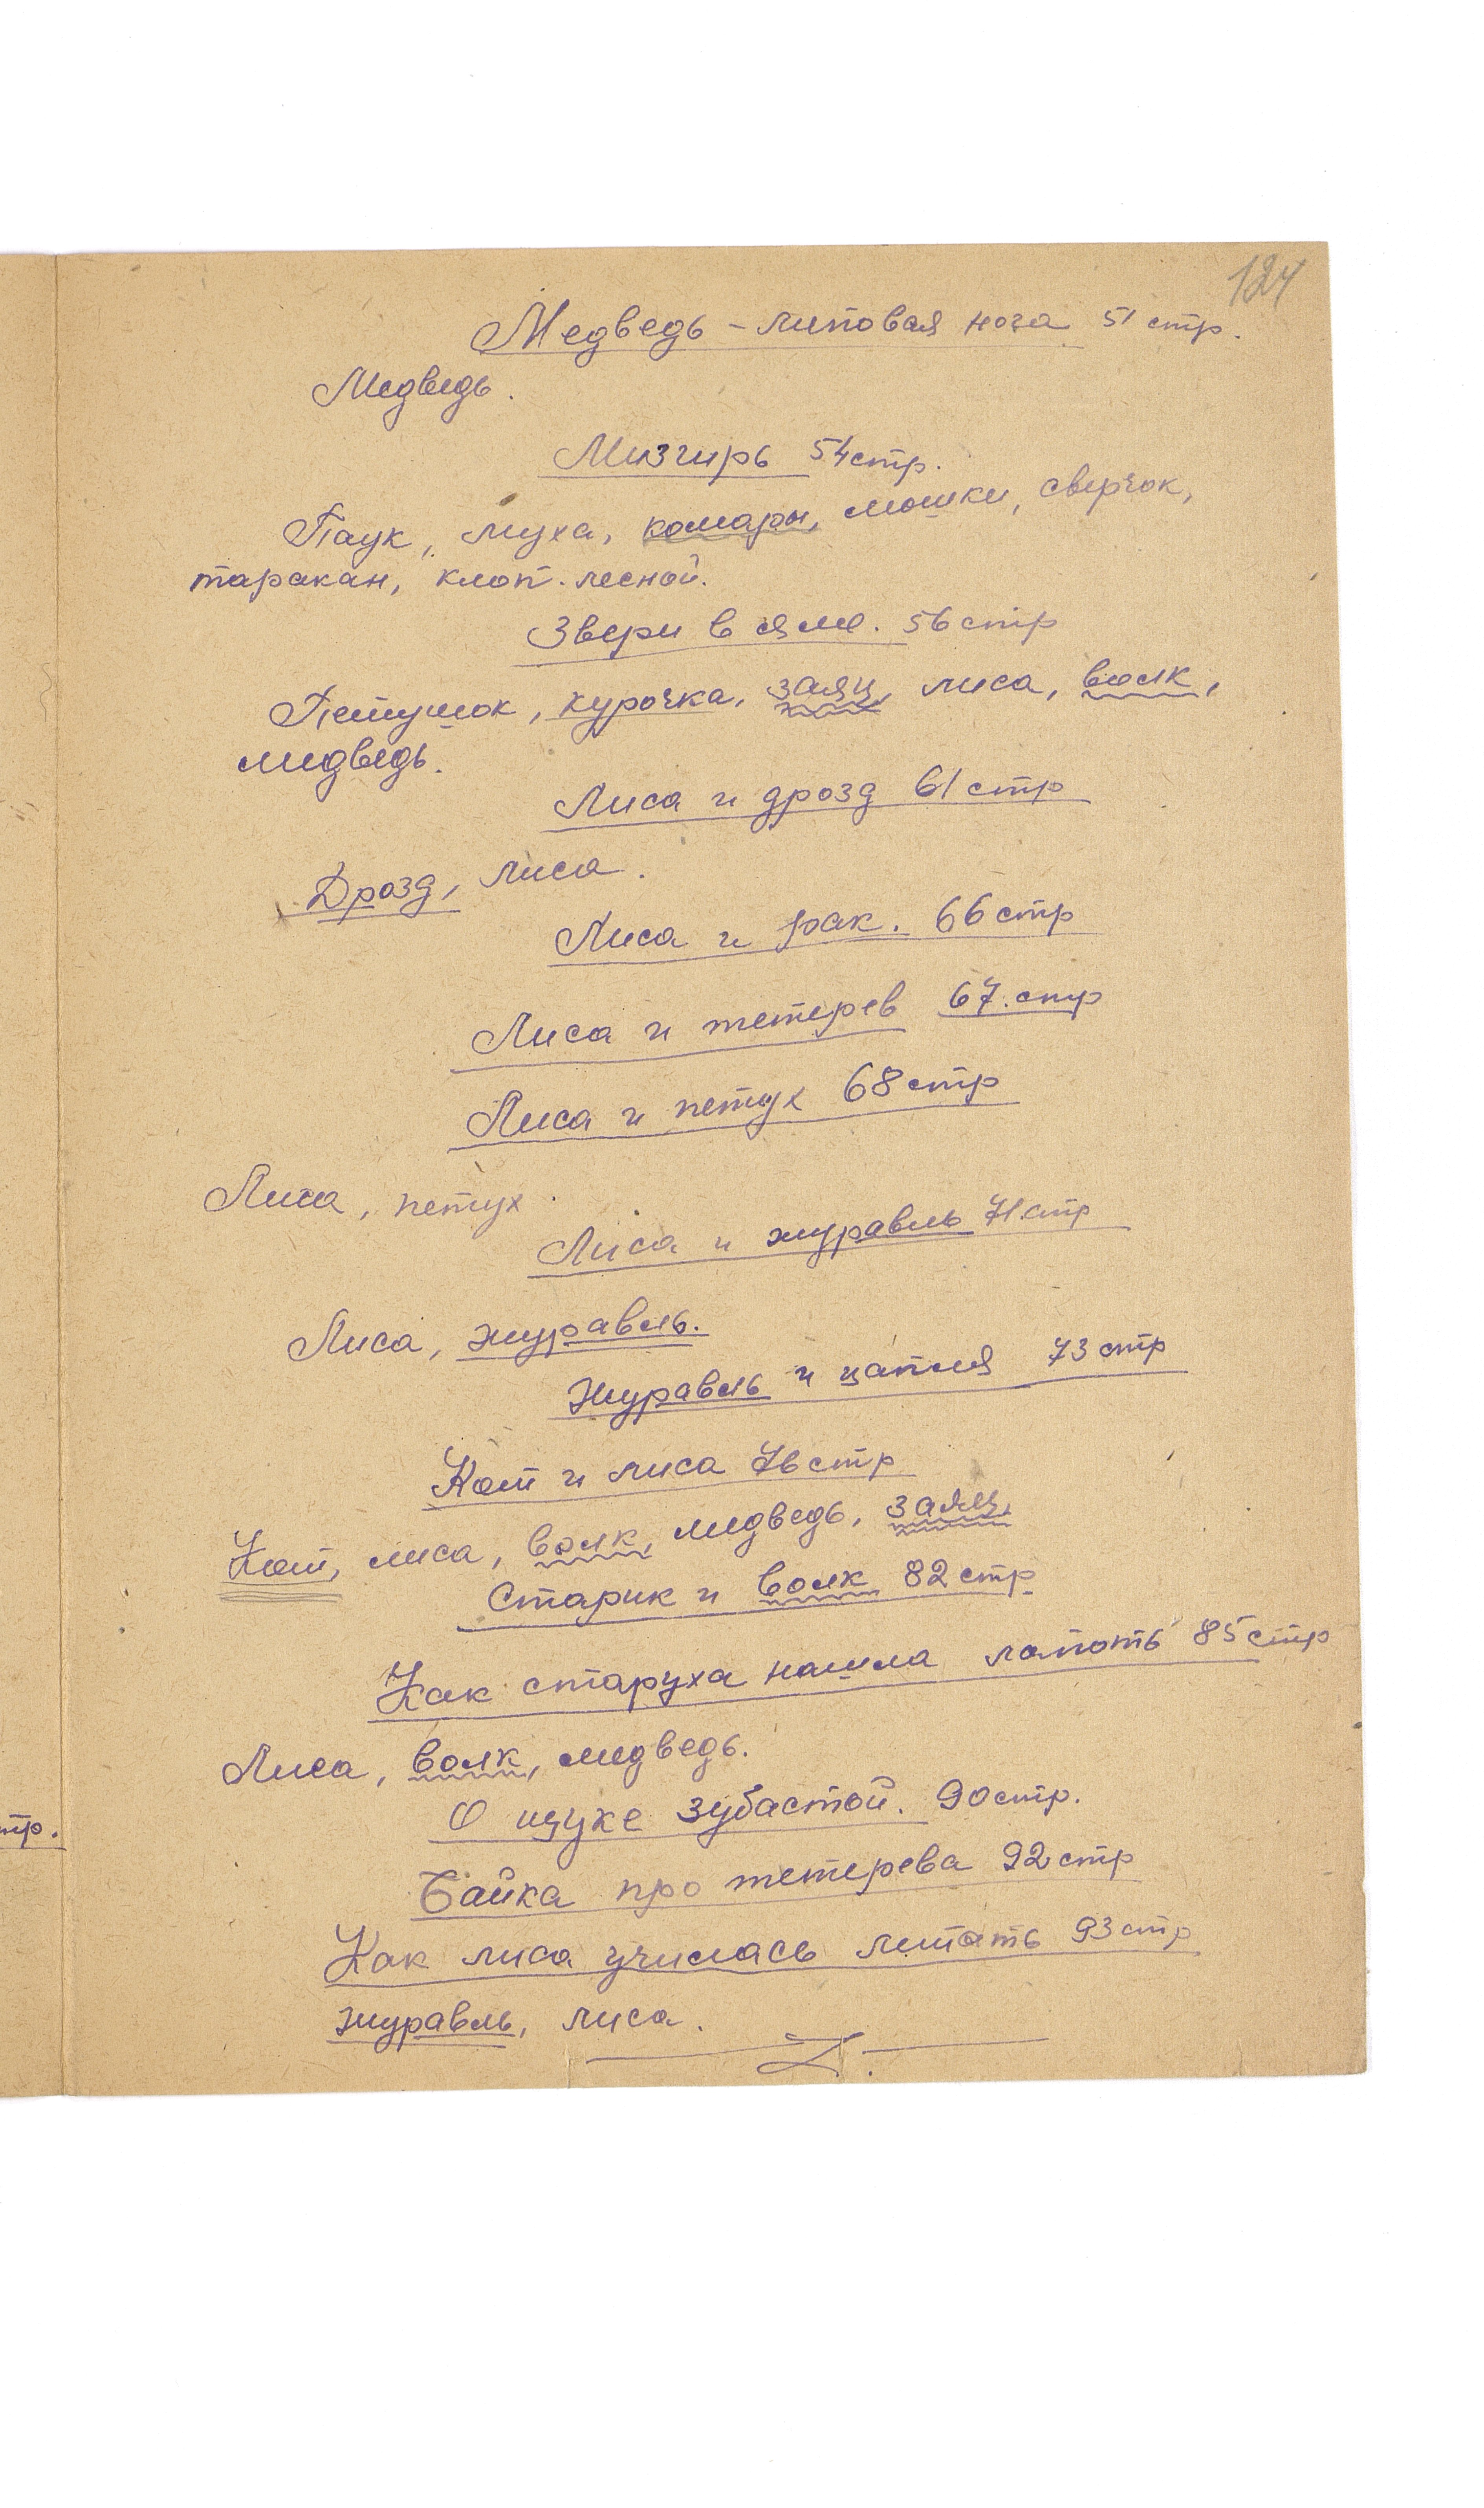 124
Медведь - липовая нога 51 стр.
Медведь.
Мизгирь 54 стр.
Паук, муха, комары, мошки, сверчок,
таракан, клоп лесной.
Звери в яме. 56 стр
Петушок, курочка, заяц, лиса, волк,
медведь.
Лиса и дрозд 61 стр
Дрозд, лиса.
Лиса и рак. 66 стр
Лиса и тетерев 67. стр
Лиса и петух 68 стр
Лиса, петух.
Лиса и журавль 71 стр
Лиса, журавль.
Журавль и цапля 73 стр
Кот и лиса 76 стр
Кот, лиса, волк, медведь, заяц.
Старик и волк 82 стр
Как старуха нашла лапоть 85 стр
Лиса, волк, медведь.
О щуке зубастой. 90 стр.
тр.
Байка про тетерева 92 стр
Как лиса училась летать 93 стр
Журавль, лиса.